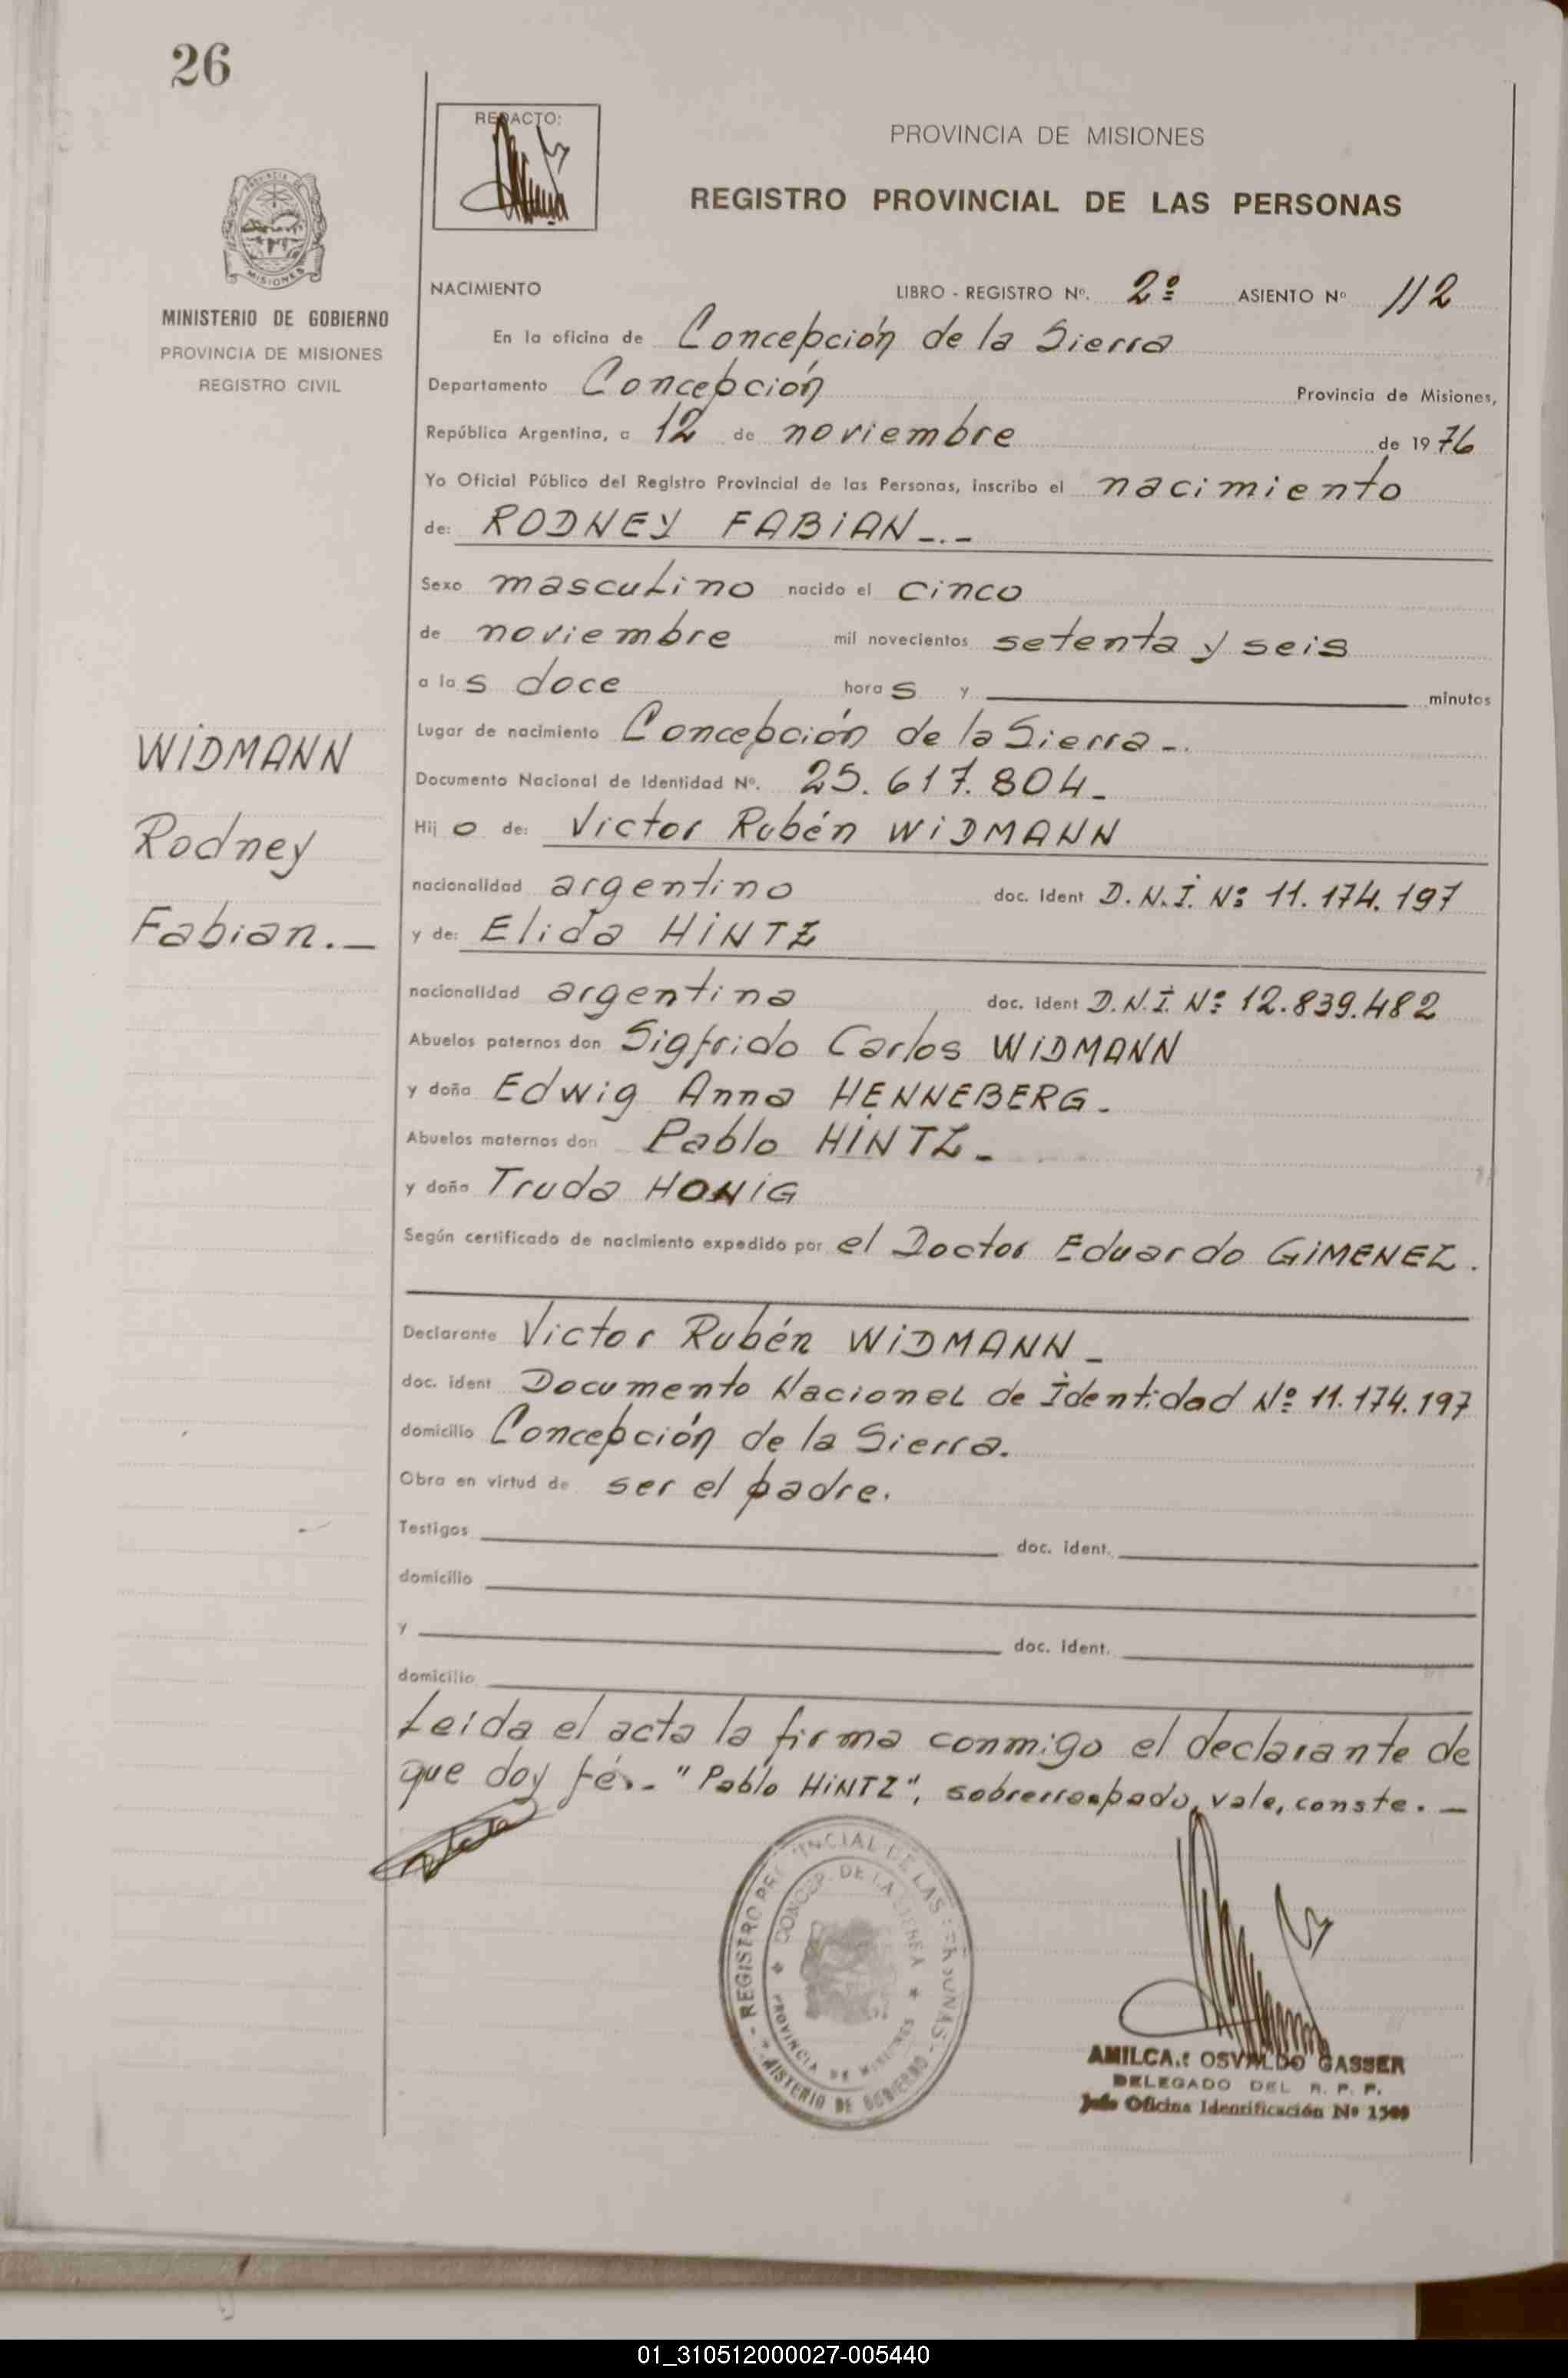 26
REDACTO:
PROVINCIA DE MISIONES
REGISTRO PROVINCIAL DE LAS PERSONAS
PROVINCIA DE
MISIONES
MINISTERIO DE GOBIERNO
PROVINCIA DE MISIONES
REGISTRO CIVIL
NACIMIENTO LIBRO - REGISTRO Nº. 2º ASIENTO Nº 112
En la oficina de Concepción de la Sierra
Departamento Concepción Provincia de Misiones,
República Argentina, a 12 de noviembre de 1976
Yo Oficial Público del Registro Provincial de las Personas, inscribo el nacimiento
de: RODNEY FABIAN_._
Sexo masculino nacido el cinco
de noviembre mil novecientos setenta y seis
a las doce horas y ____ minutos
Lugar de nacimiento Concepción de la Sierra_.
Documento Nacional de Identidad Nº. 25.617.804_
Hijo de: Victor Rubén WIDMANN
nacionalidad argentino doc. ident D.N.I. Nº 11.174.197
y de: Elida HINTZ
nacionalidad argentina doc. ident D.N.I. Nº 12.839.482
Abuelos paternos don Sigfrido Carlos WIDMANN
y doña Edwig Anna HENNEBERG_
Abuelos maternos don Pablo HINTZ_
y doña Truda HONIG
Según certificado de nacimiento expedido por el Doctor Eduardo GIMENEZ.
Declarante Victor Rubén WIDMANN_
doc. ident Documento Nacional de Identidad Nº 11.174.197
domicilio Concepción de la Sierra.
Obra en virtud de ser el padre.
Testigos ____ doc. ident. ____
domicilio ____
y ____ doc. ident. ____
domicilio ____
Leída el acta la firma conmigo el declarante de
que doy fé._ "Pablo HINTZ", sobrerraspado, vale, conste._
WIDMANN
Rodney
Fabian._
REGISTRO PROVINCIAL DE LAS PERSONAS
MINISTERIO DE GOBIERNO
CONCEP. DE LA SIERRA
PROVINCIA DE MISIONES
AMILCAR OSVALDO GASSER
DELEGADO DEL R. P. P.
Jefe Oficina Identificación Nº
01_310512000027-005440